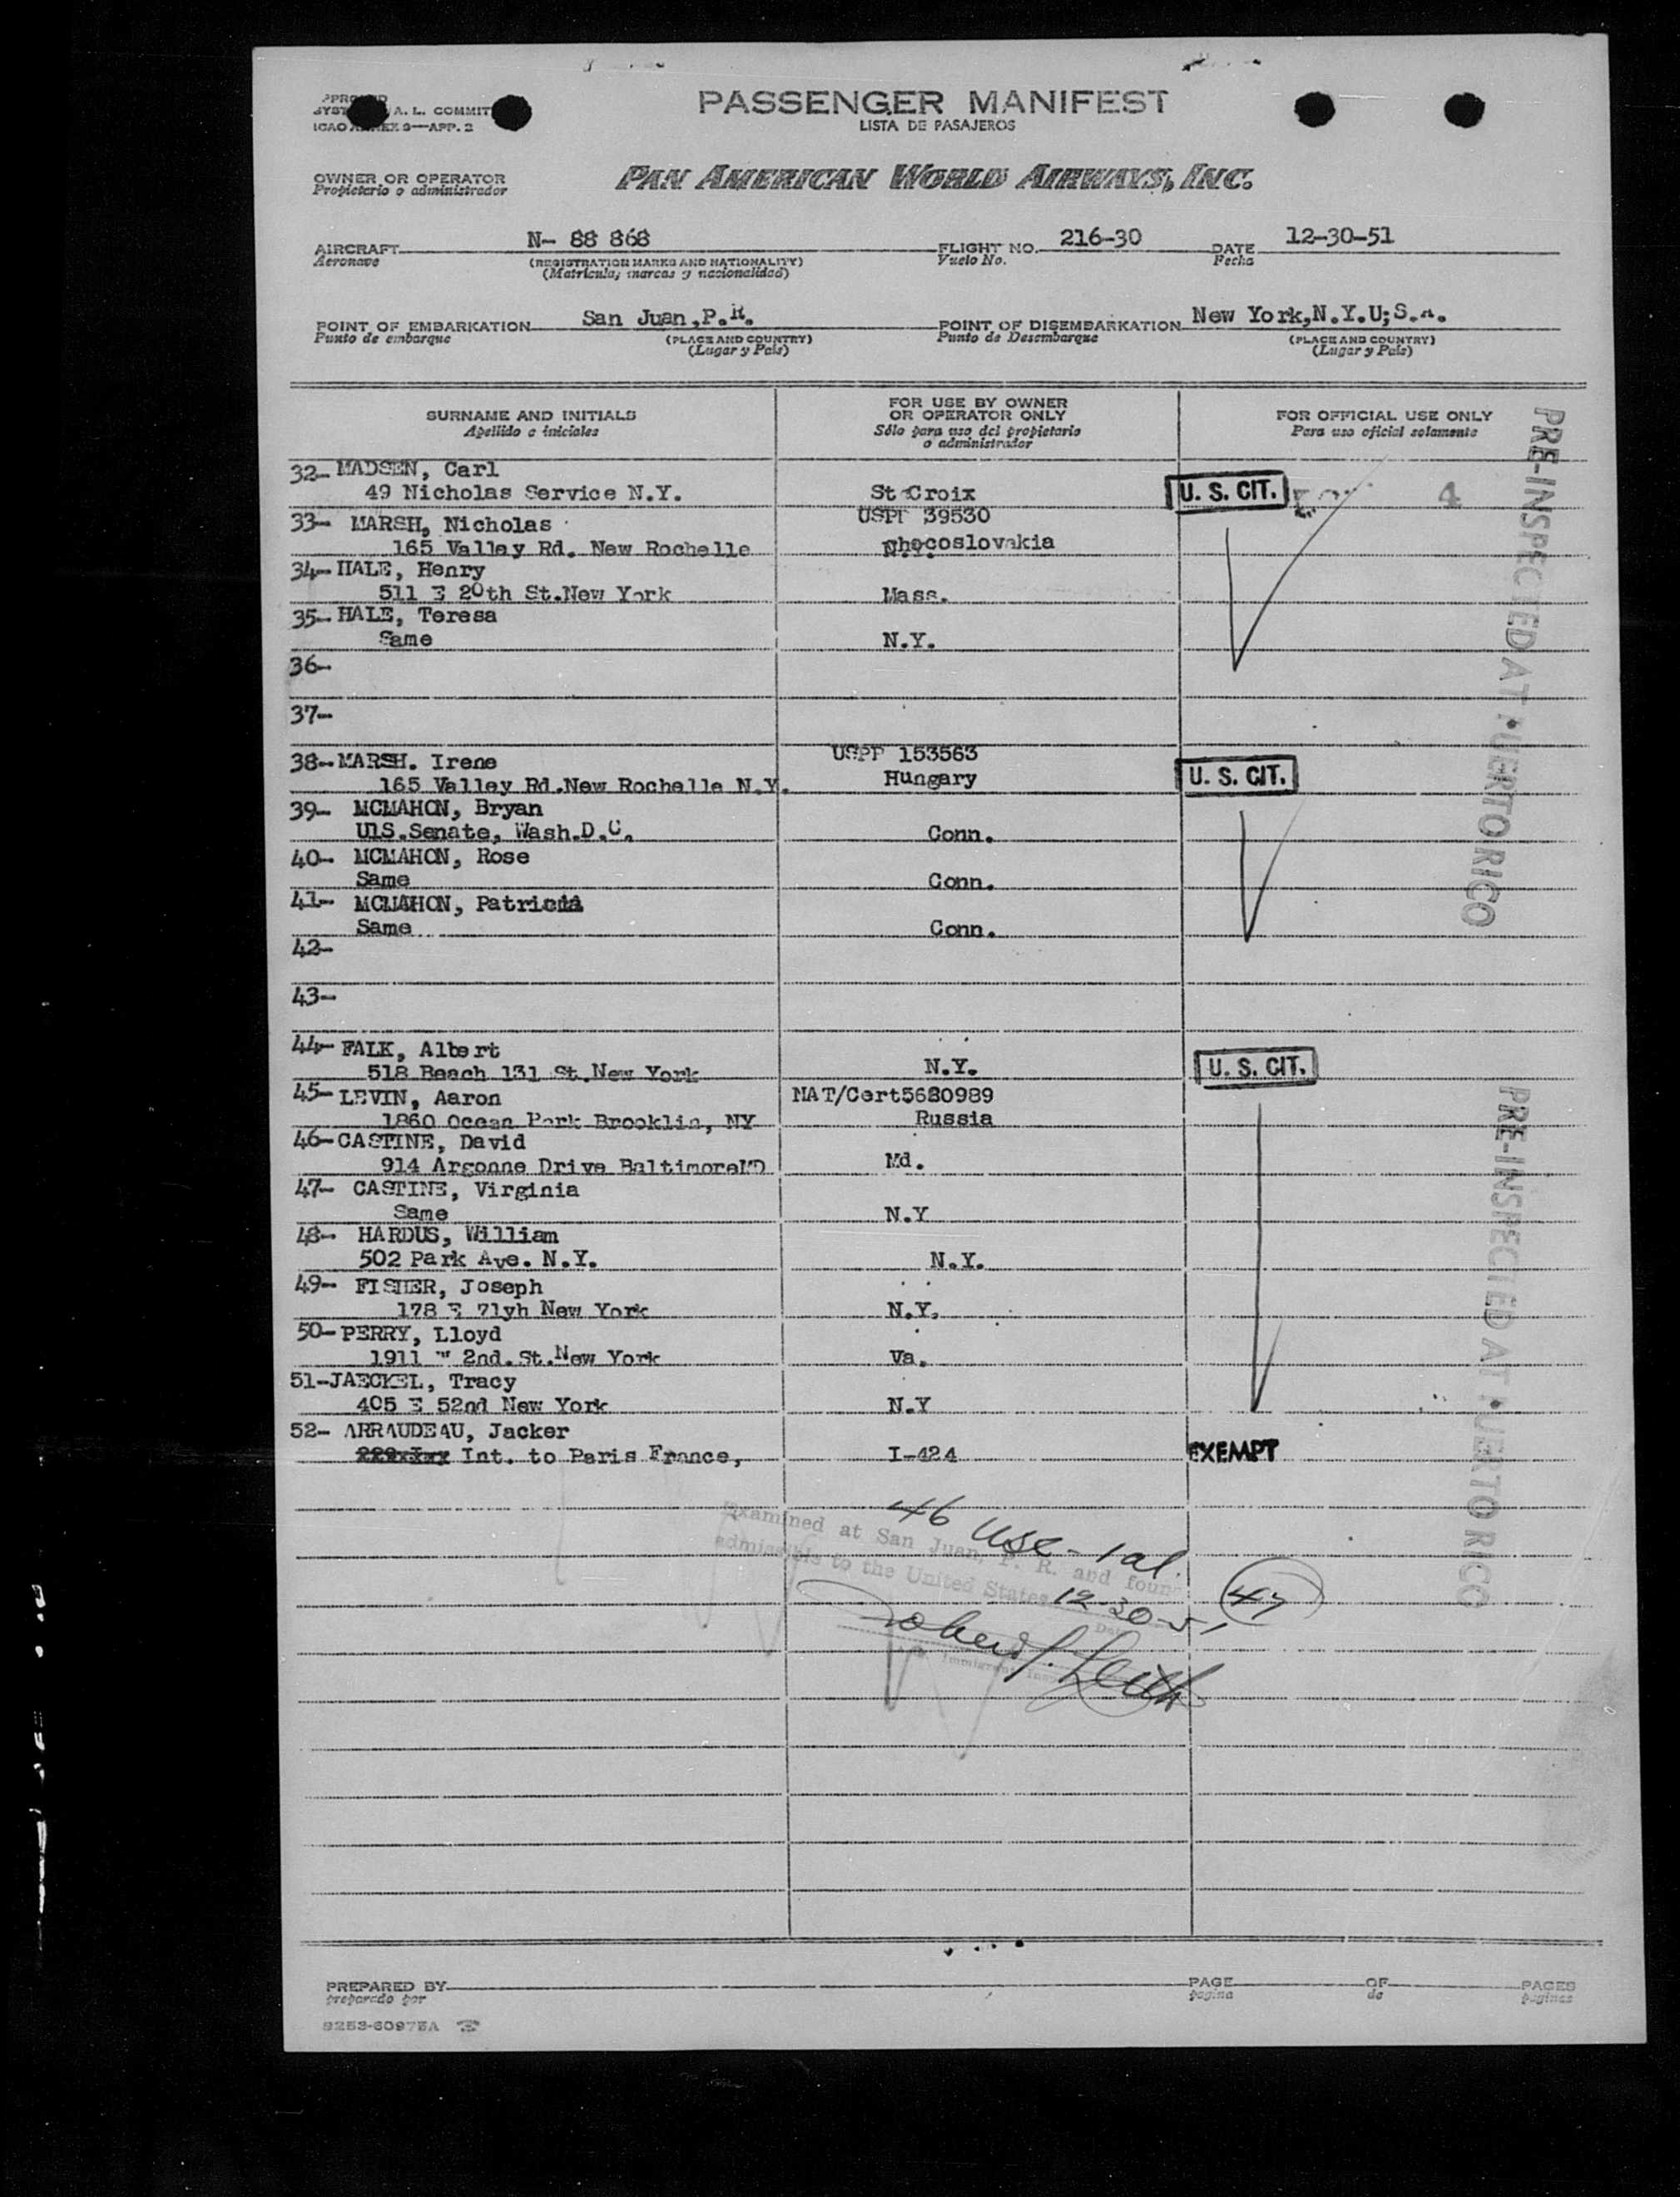 A. L. COMMIT
ICAO ANNEX 9—APP. 2
PASSENGER MANIFEST
LISTA DE PASAJEROS
OWNER OR OPERATOR
Propietario o administrador
PAN AMERICAN WORLD AIRWAYS, INC.
AIRCRAFT N- 88 868 FLIGHT NO. 216-30 DATE 12-30-51
Aeronave (REGISTRATION MARKS AND NATIONALITY) Vuelo No. Fecha
(Matrícula, marcas y nacionalidad)
POINT OF EMBARKATION San Juan,P.R. POINT OF DISEMBARKATION New York,N.Y.U;S.A.
Punto de embarque (PLACE AND COUNTRY) Punto de Desembarque (PLACE AND COUNTRY)
(Lugar y País) (Lugar y País)
SURNAME AND INITIALS
Apellido e iniciales
FOR USE BY OWNER
OR OPERATOR ONLY
Sólo para uso del propietario
o administrador
FOR OFFICIAL USE ONLY
Para uso oficial solamente
32- MADSEN, Carl
49 Nicholas Service N.Y. St Croix U. S. CIT. 4
33- MARSH, Nicholas USPP 39530
165 Valley Rd. New Rochelle hecoslovakia
34- HALE, Henry
511 E 20th St.New York Mass.
35- HALE, Teresa
Same N.Y.
36-
37-
38- MARSH. Irene USPP 153563
165 Valley Rd.New Rochelle N.Y. Hungary U. S. CIT.
39- MCMAHON, Bryan
U1S.Senate, Wash.D.C. Conn.
40- MCMAHON, Rose
Same Conn.
41- MCMAHON, Patricia
Same Conn.
42-
43-
44- FALK, Albert
518 Beach 131 St.New York N.Y. U. S. CIT.
45- LEVIN, Aaron NAT/Cert5680989
1860 Ocean Park Brooklin, NY Russia
46- CASTINE, David
914 Argonne Drive BaltimoreMD Md.
47- CASTINE, Virginia
Same N.Y
48- HARDUS, William
502 Park Ave. N.Y. N.Y.
49- FISHER, Joseph
178 E 71yh New York N.Y.
50- PERRY, Lloyd
1911 W 2nd.St.New York Va.
51-JAECKEL, Tracy
405 E 52nd New York N.Y
52- ARRAUDEAU, Jacker
Int. to Paris France, I-424 EXEMPT
PRE-INSPECTED AT PUERTO RICO
PRE-INSPECTED AT PUERTO RICO
46 USC - 1 al.
Examined at San Juan, P. R. and found
admissible to the United States
12-30-51
47
Robert J. Leith
PREPARED BY PAGE OF PAGES
preparado por página de páginas
9253-60975A